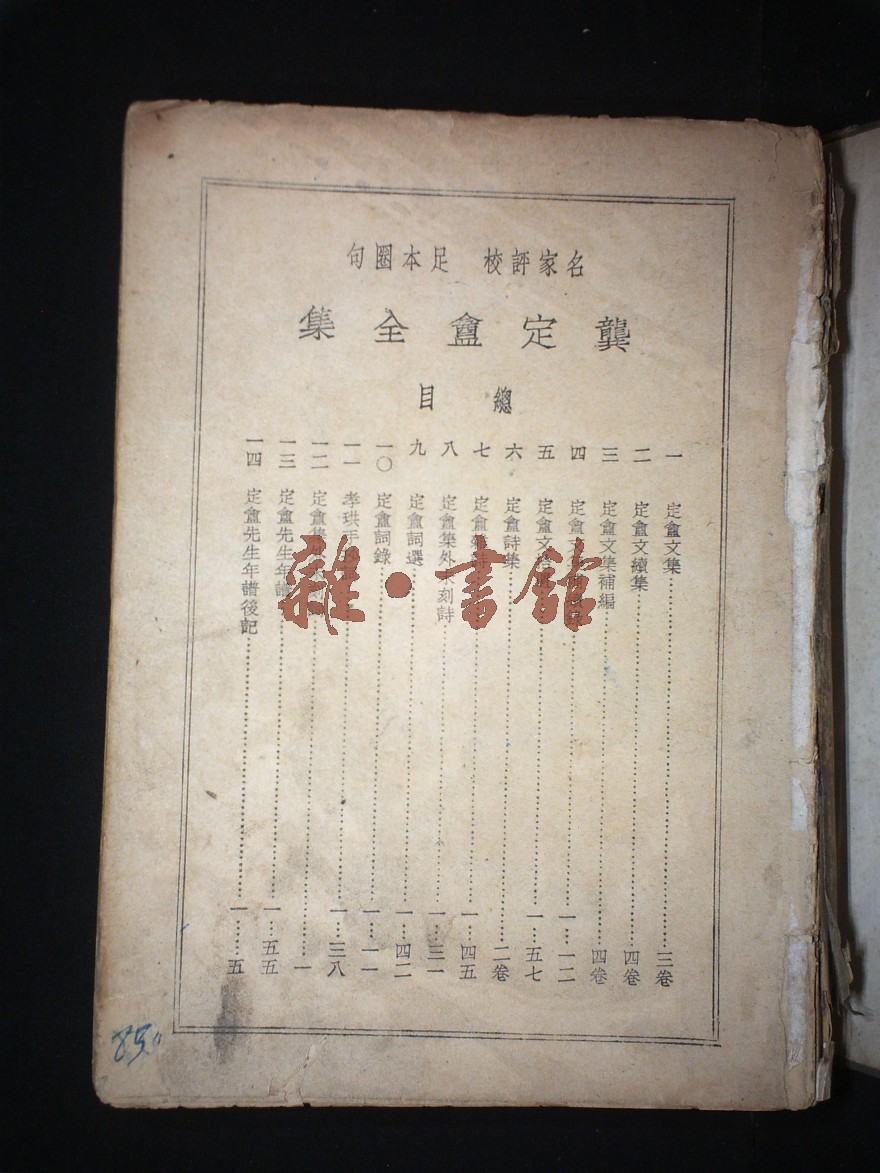 名家評校 足本圈句
龔定盦全集
總目
一 定盦文集……三卷
二 定盦文續集……四卷
三 定盦文集補編……四卷
四 定盦文……一……一二
五 定盦文……一……五七
六 定盦詩集……二卷
七 定盦……詩……一……四五
八 定盦集外未刻詩……一……三一
九 定盦詞選……一……四二
一〇 定盦詞錄……一……一一
一一 孝珙手……一……三八
一二 定盦集……一
一三 定盦先生年譜……一……五五
一四 定盦先生年譜後記……一……五
雜·書館